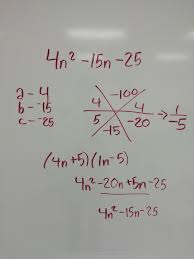 4n² -15n -25
a - 4
b - -15
c - -25
-100
4 4 → 1/-5
5 -20
-15
(4n+5)(1n-5)
4n² -20n +5n -25
4n² -15n -25